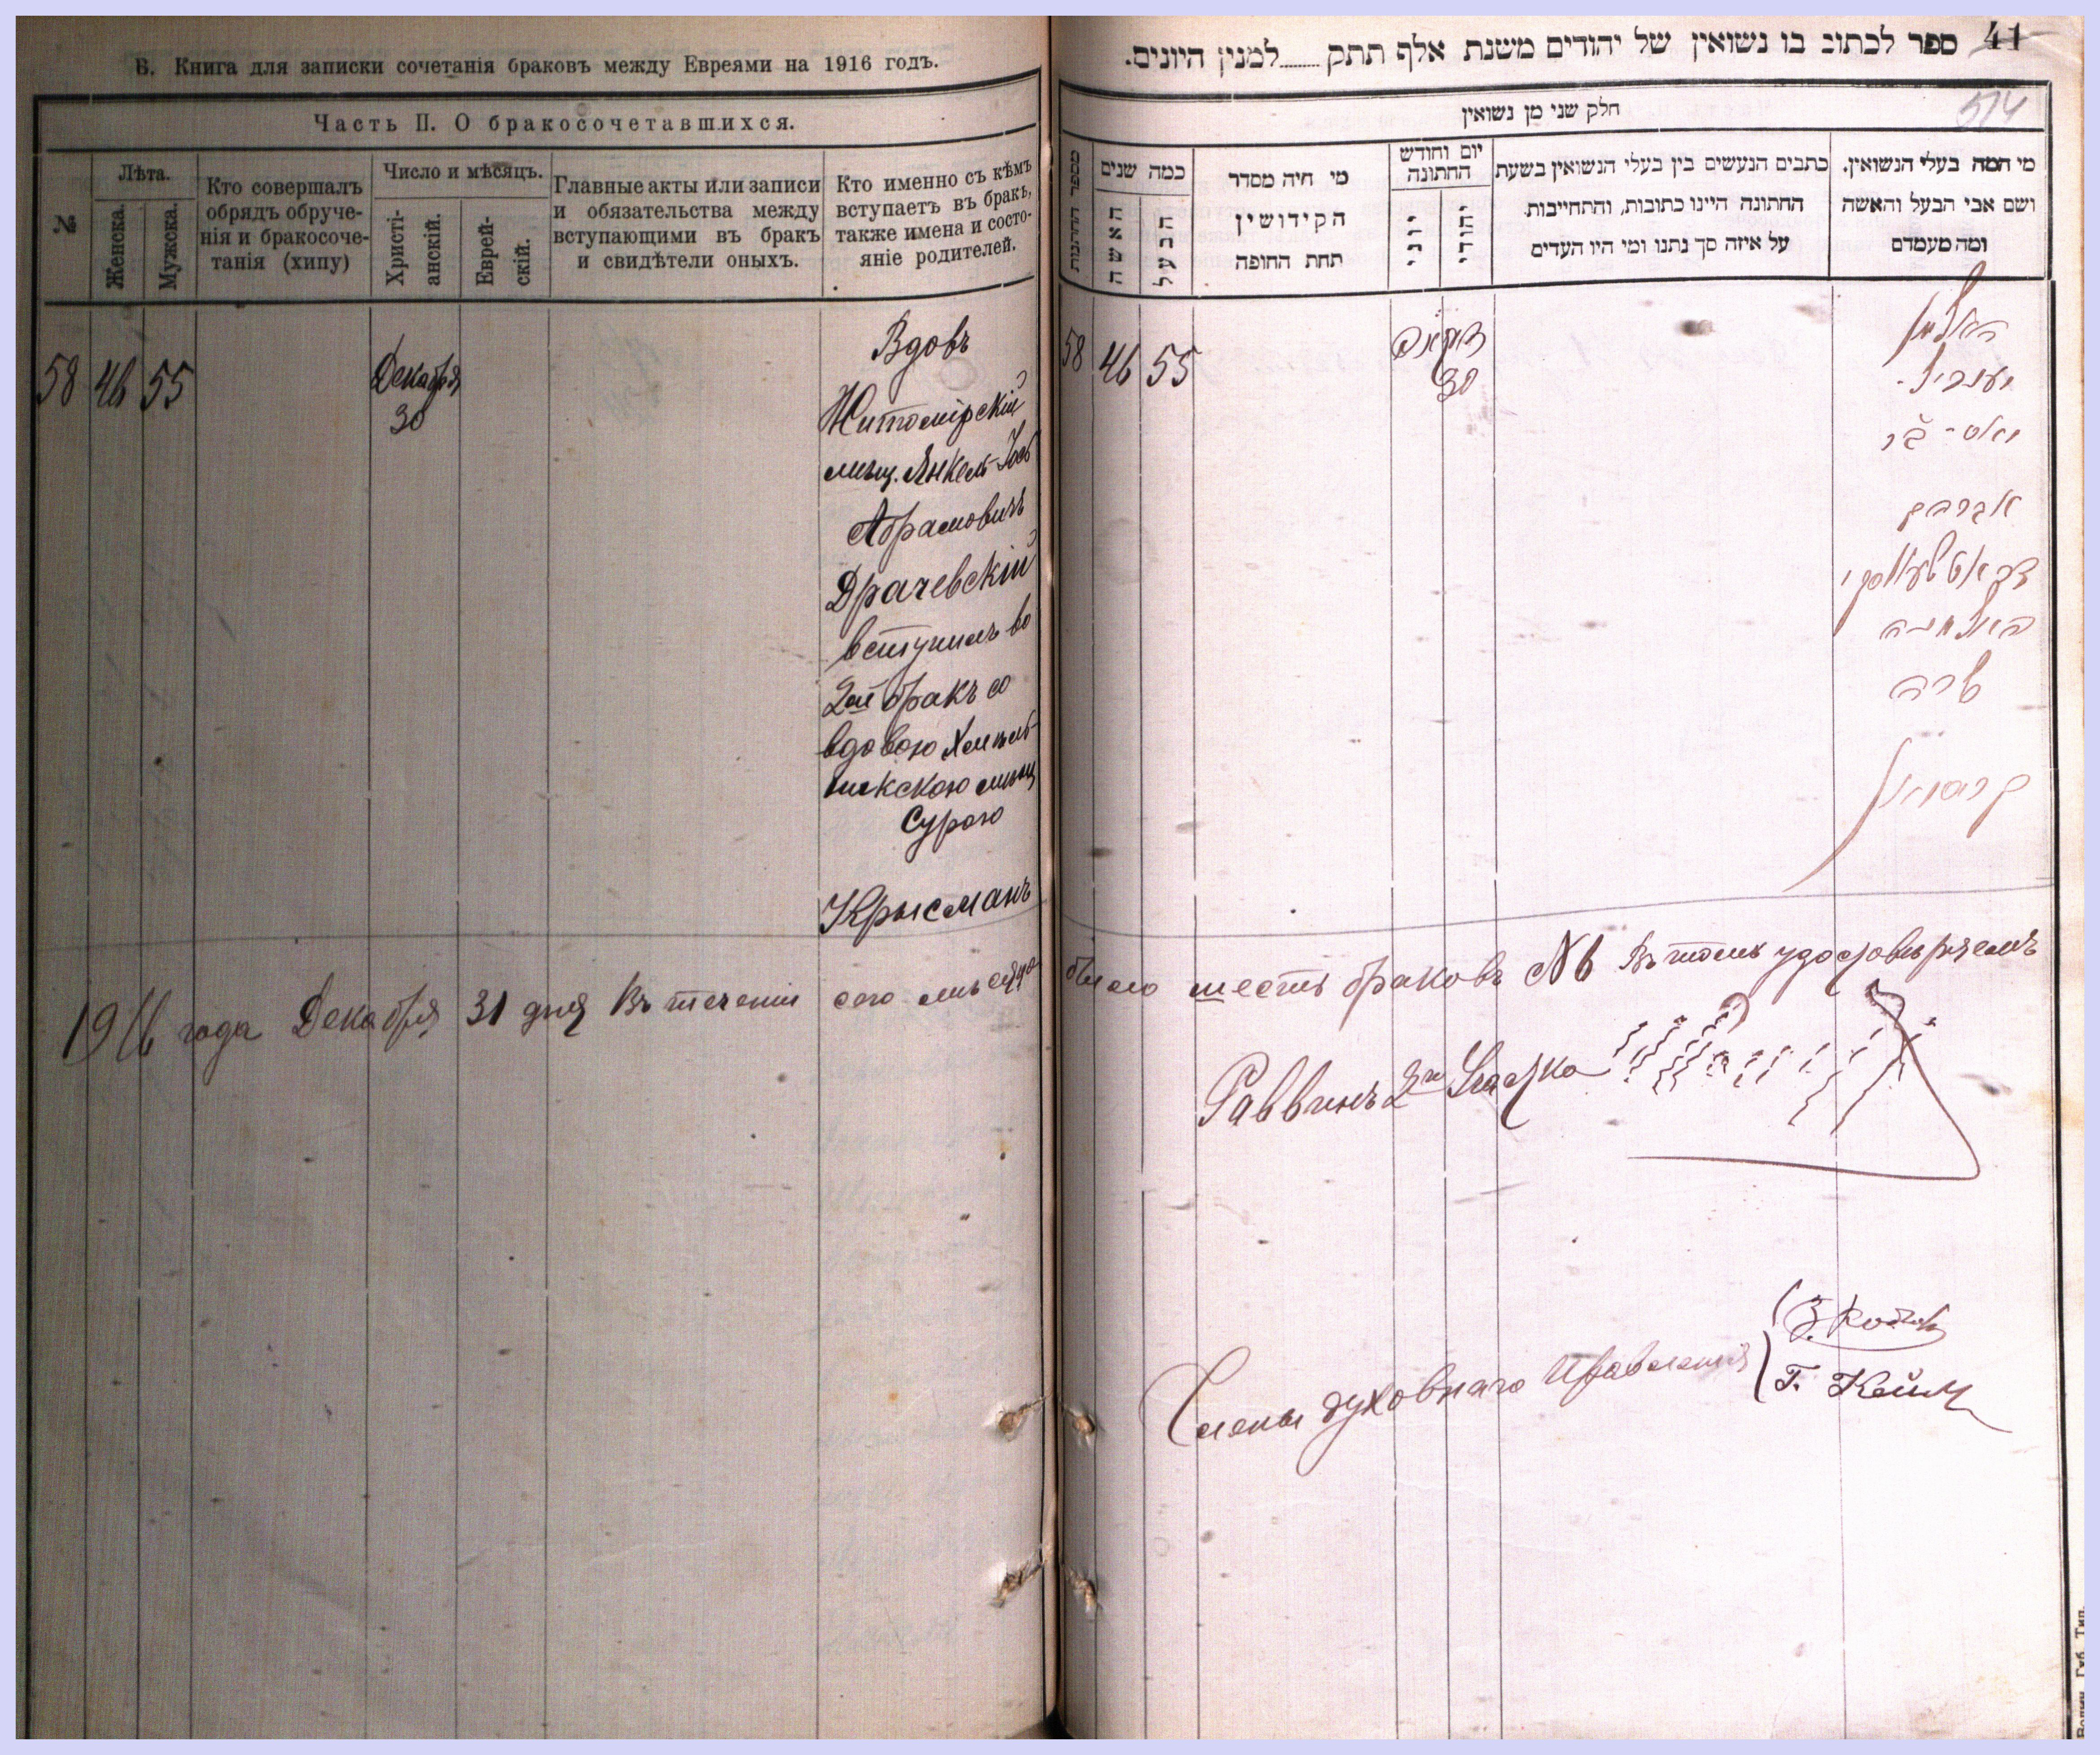 В. Книга для записки сочетанія браковъ между Евреями на 1916 годъ.
Часть II. О бракосочетавшихся.
№
Лѣта.
Женска.
Мужска.
Кто совершалъ
обрядъ обруче-
нія и бракосоче-
танія (хипу)
Число и мѣсяцъ.
Христі-
анскій.
Еврей-
скій.
Главные акты или записи
и обязательства между
вступающими въ бракъ
и свидѣтели оныхъ.
Кто именно съ кѣмъ
вступаетъ въ бракъ,
также имена и состо-
яніе родителей.
58 46 55
Декабря
30
Вдовъ
Житомірскій
мѣщ. Янкель-Іось
Абрамовичъ
Драчевскій
вступилъ во
2ой бракъ со
вдовою Хмѣль-
никскою мѣщ
Сурою
Крысманъ
41
ספר לכתוב בו נשואין של יהודים משנת אלף תתק......למנין היונים.
514
חלק שני מן נשואין
מי המה בעלי הנשואין,
ושם אבי הבעל והאשה
ומה מעמדם
כתבים הנעשים בין בעלי הנשואין בשעת
החתונה היינו כתובות, והתחייבות
על איזה סך נתנו ומי היו העדים
יום וחודש
החתונה
יהודי
יוני
מי היה מסדר
הקידושין
תחת החופה
כמה שנים
הבעל
האשה
58 46 55
30
האלמן
יענקיל-
אברהם
האלמנה
שרה
קריסמאן
1916 года Декабря 31 дня Въ теченіи сего мѣсяца было шесть браковъ №6 Въ томъ удостовѣряемъ
Раввинъ 2го Участка
Члены духовнаго Правленія
Г. Кейл
Волын. Губ. Тип.